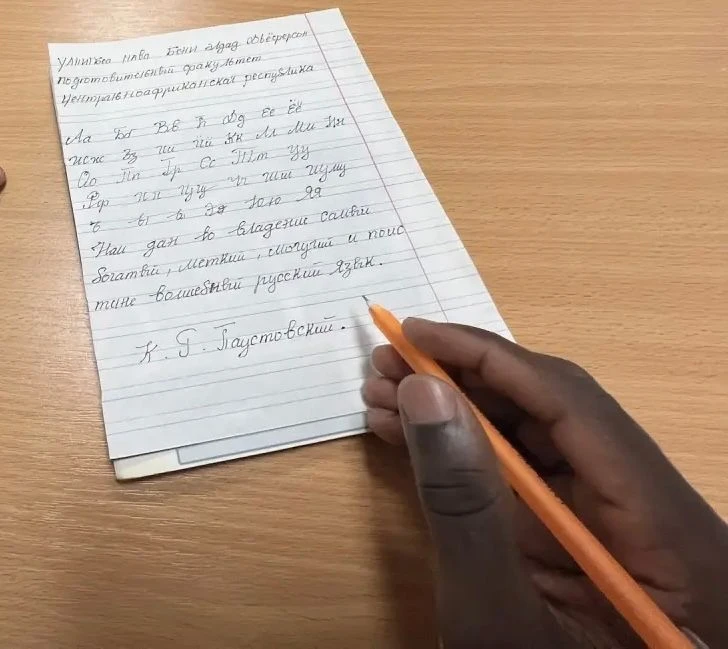 подготовительный факультет
Центральноафриканская республика
Аа Бб Вв Гг Дд Ее Ёё
Жж Зз Ии Йй Кк Лл Мм Нн
Оо Пп Рр Сс Тт Уу
Фф Хх Цц Чч Шш Щщ
ъ ы ь Ээ Юю Яя
Нам дан во владение самый
богатый, меткий, могучий и поис
тине волшебный русский язык.
К. Г. Паустовский.